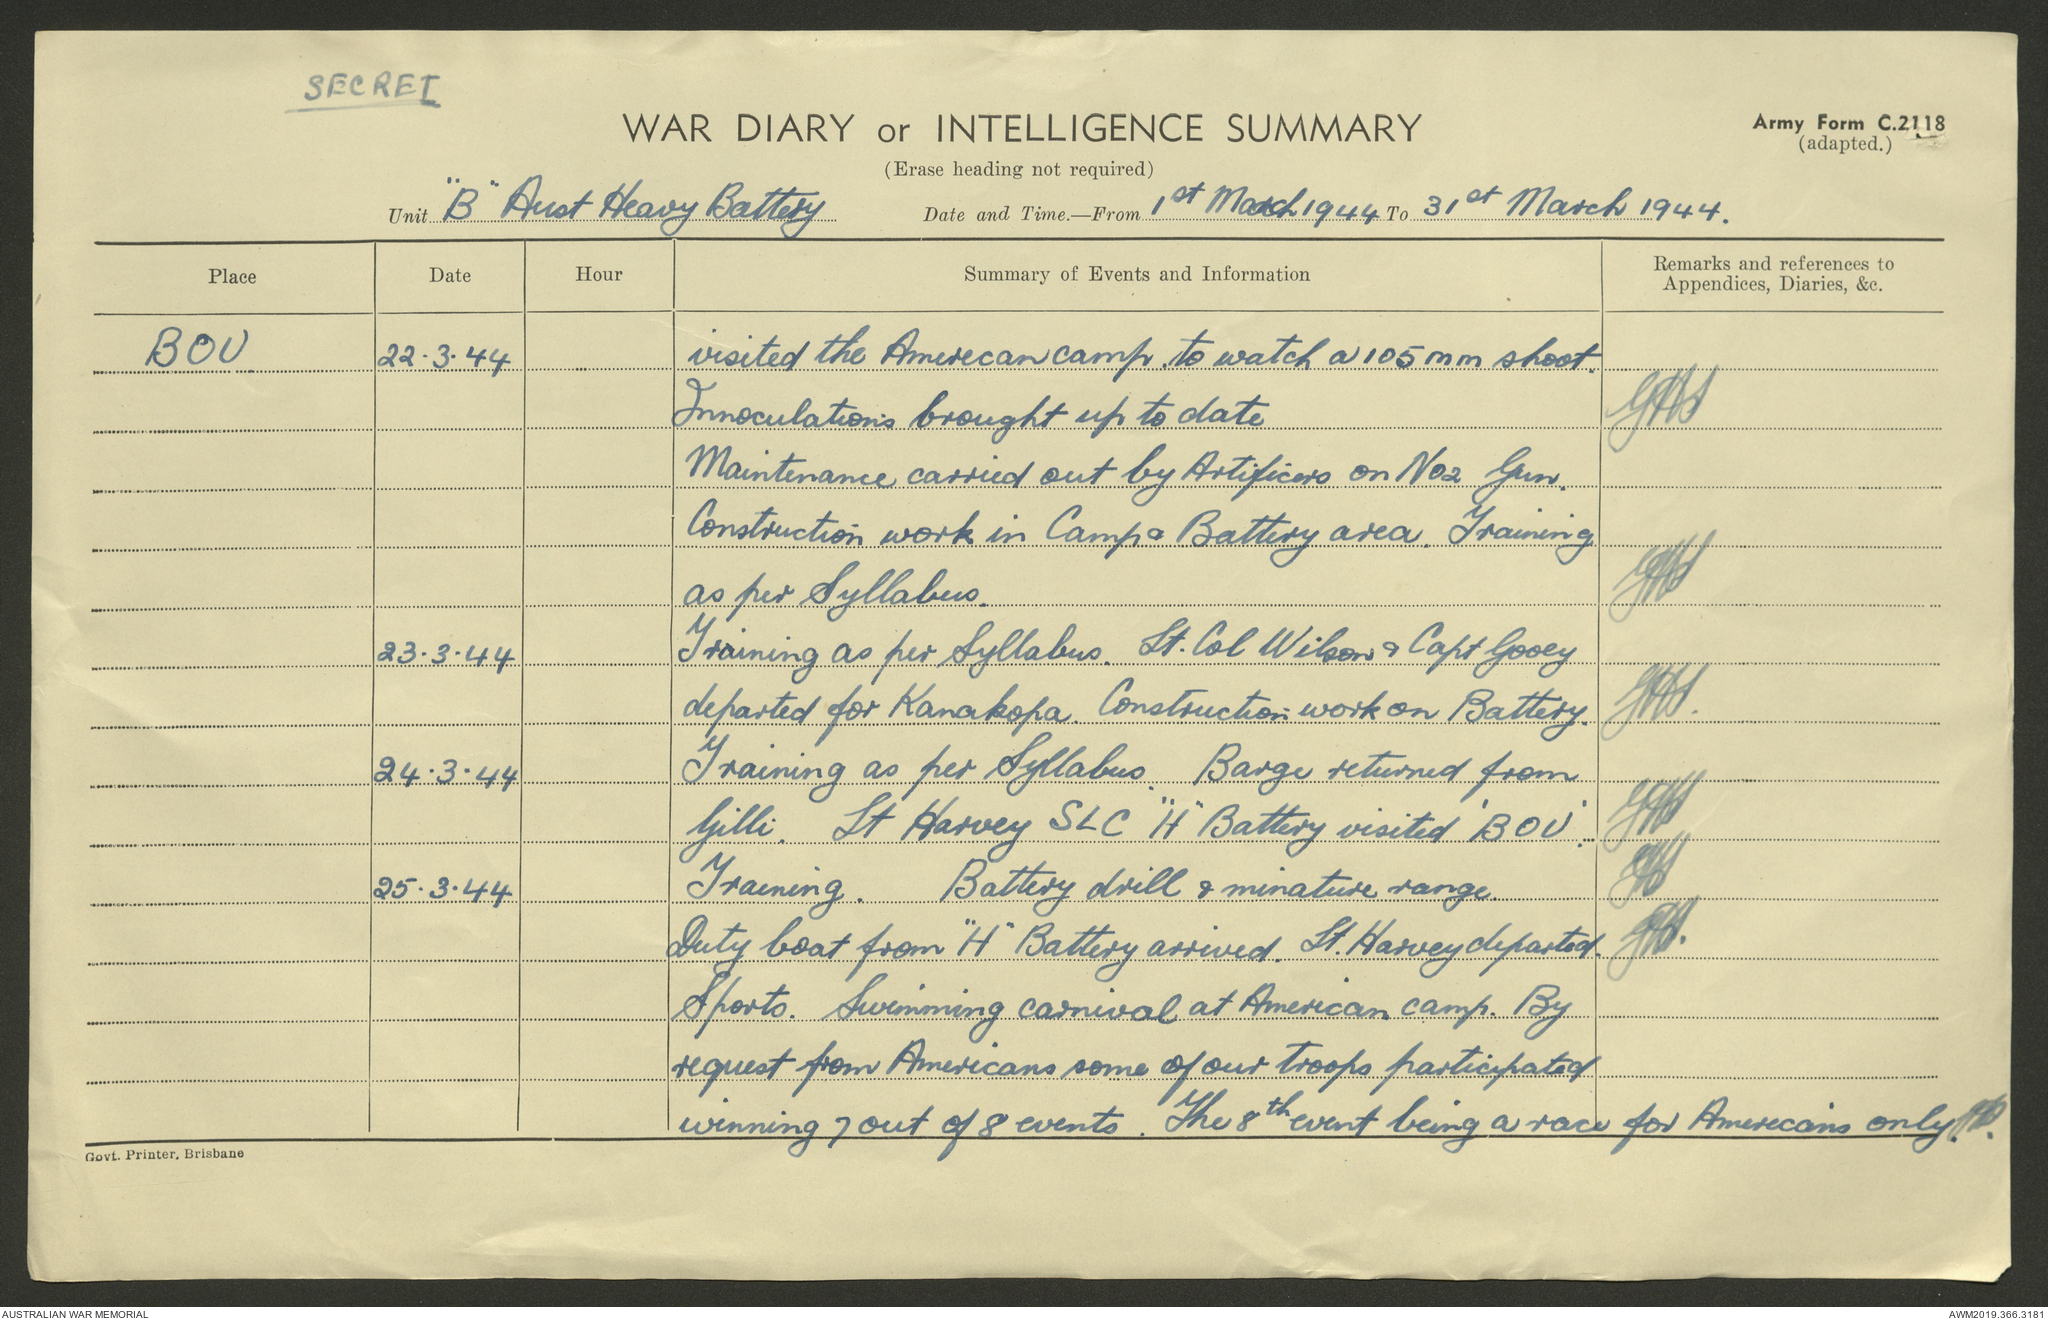 SECRET
WAR DIARY or INTELLIGENCE SUMMARY
Army Form C.2118
(adapted.)
(Erase heading not required)
Unit "B" Aust Heavy Battery Date and Time.—From 1st March 1944 To 31st March 1944.
Place Date Hour Summary of Events and Information Remarks and references to
Appendices, Diaries, &c.
BOV 22.3.44 visited the Amerecan camp to watch a 105 mm shoot.
Innoculations brought up to date
Maintenance carried out by Artificers on No2 Gun.
Construction work in Camp & Battery area. Training
as per Syllabus.
23.3.44 Training as per Syllabus. Lt. Col Wilson & Capt Gooey
departed for Kanakopa. Construction work on Battery.
24.3.44 Training as per Syllabus. Barge returned from
Gilli. Lt Harvey SLC "H" Battery visited 'BOV'.
25.3.44 Training. Battery drill & minature range.
Duty boat from "H" Battery arrived. Lt. Harvey departed.
Sports. Swimming carnival at American camp. By
request from Americans some of our troops participated
winning 7 out of 8 events. The 8th event being a race for Amerecans only.
Govt. Printer, Brisbane
AUSTRALIAN WAR MEMORIAL
AWM2019.366.3181